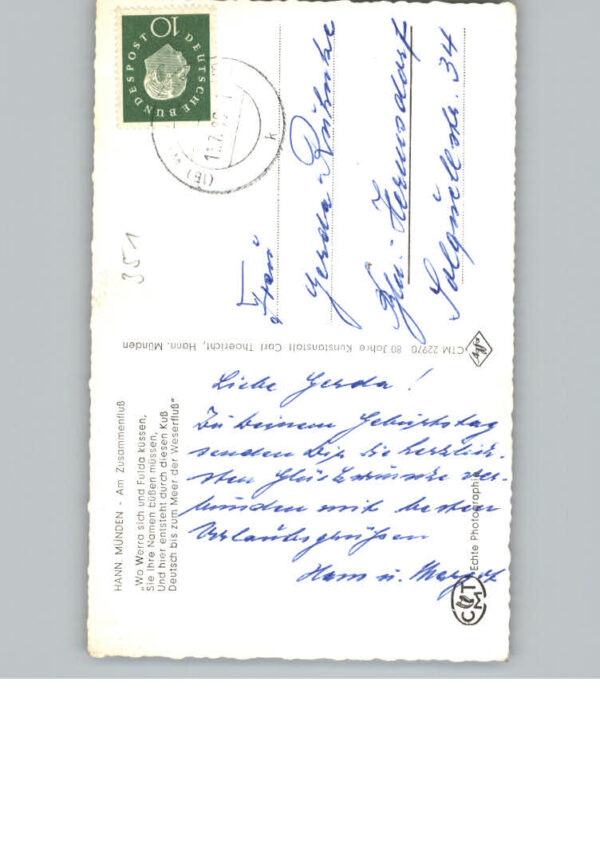 HANN. MÜNDEN - Am Zusammenfluß
„Wo Werra sich und Fulda küssen,
Sie Ihre Namen büßen müssen,
Und hier entsteht durch diesen Kuß
Deutsch bis zum Meer der Weserfluß"
Liebe Gerda!
Zu Deinem Geburtstag
senden Dir die herzlich-
sten Glückwünsche ver-
bunden mit besten
Urlaubsgrüßen
Hans u. Margot
CTM
Echte Photographie
CTM 22970 80 Jahre Kunstanstalt Carl Thoericht, Hann. Münden
DEUTSCHE BUNDESPOST
10
(16)
k
351
Frau
Gerda
Bln.-Hermsdorf
Solquellstr. 34